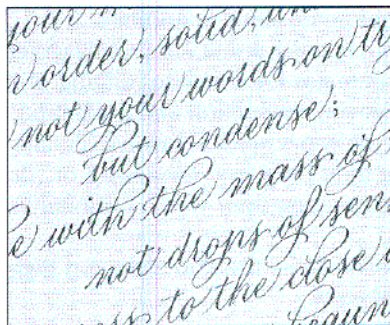 your
order, solid,
not your words on
but condense;
with the mass of
not drops of
to the close